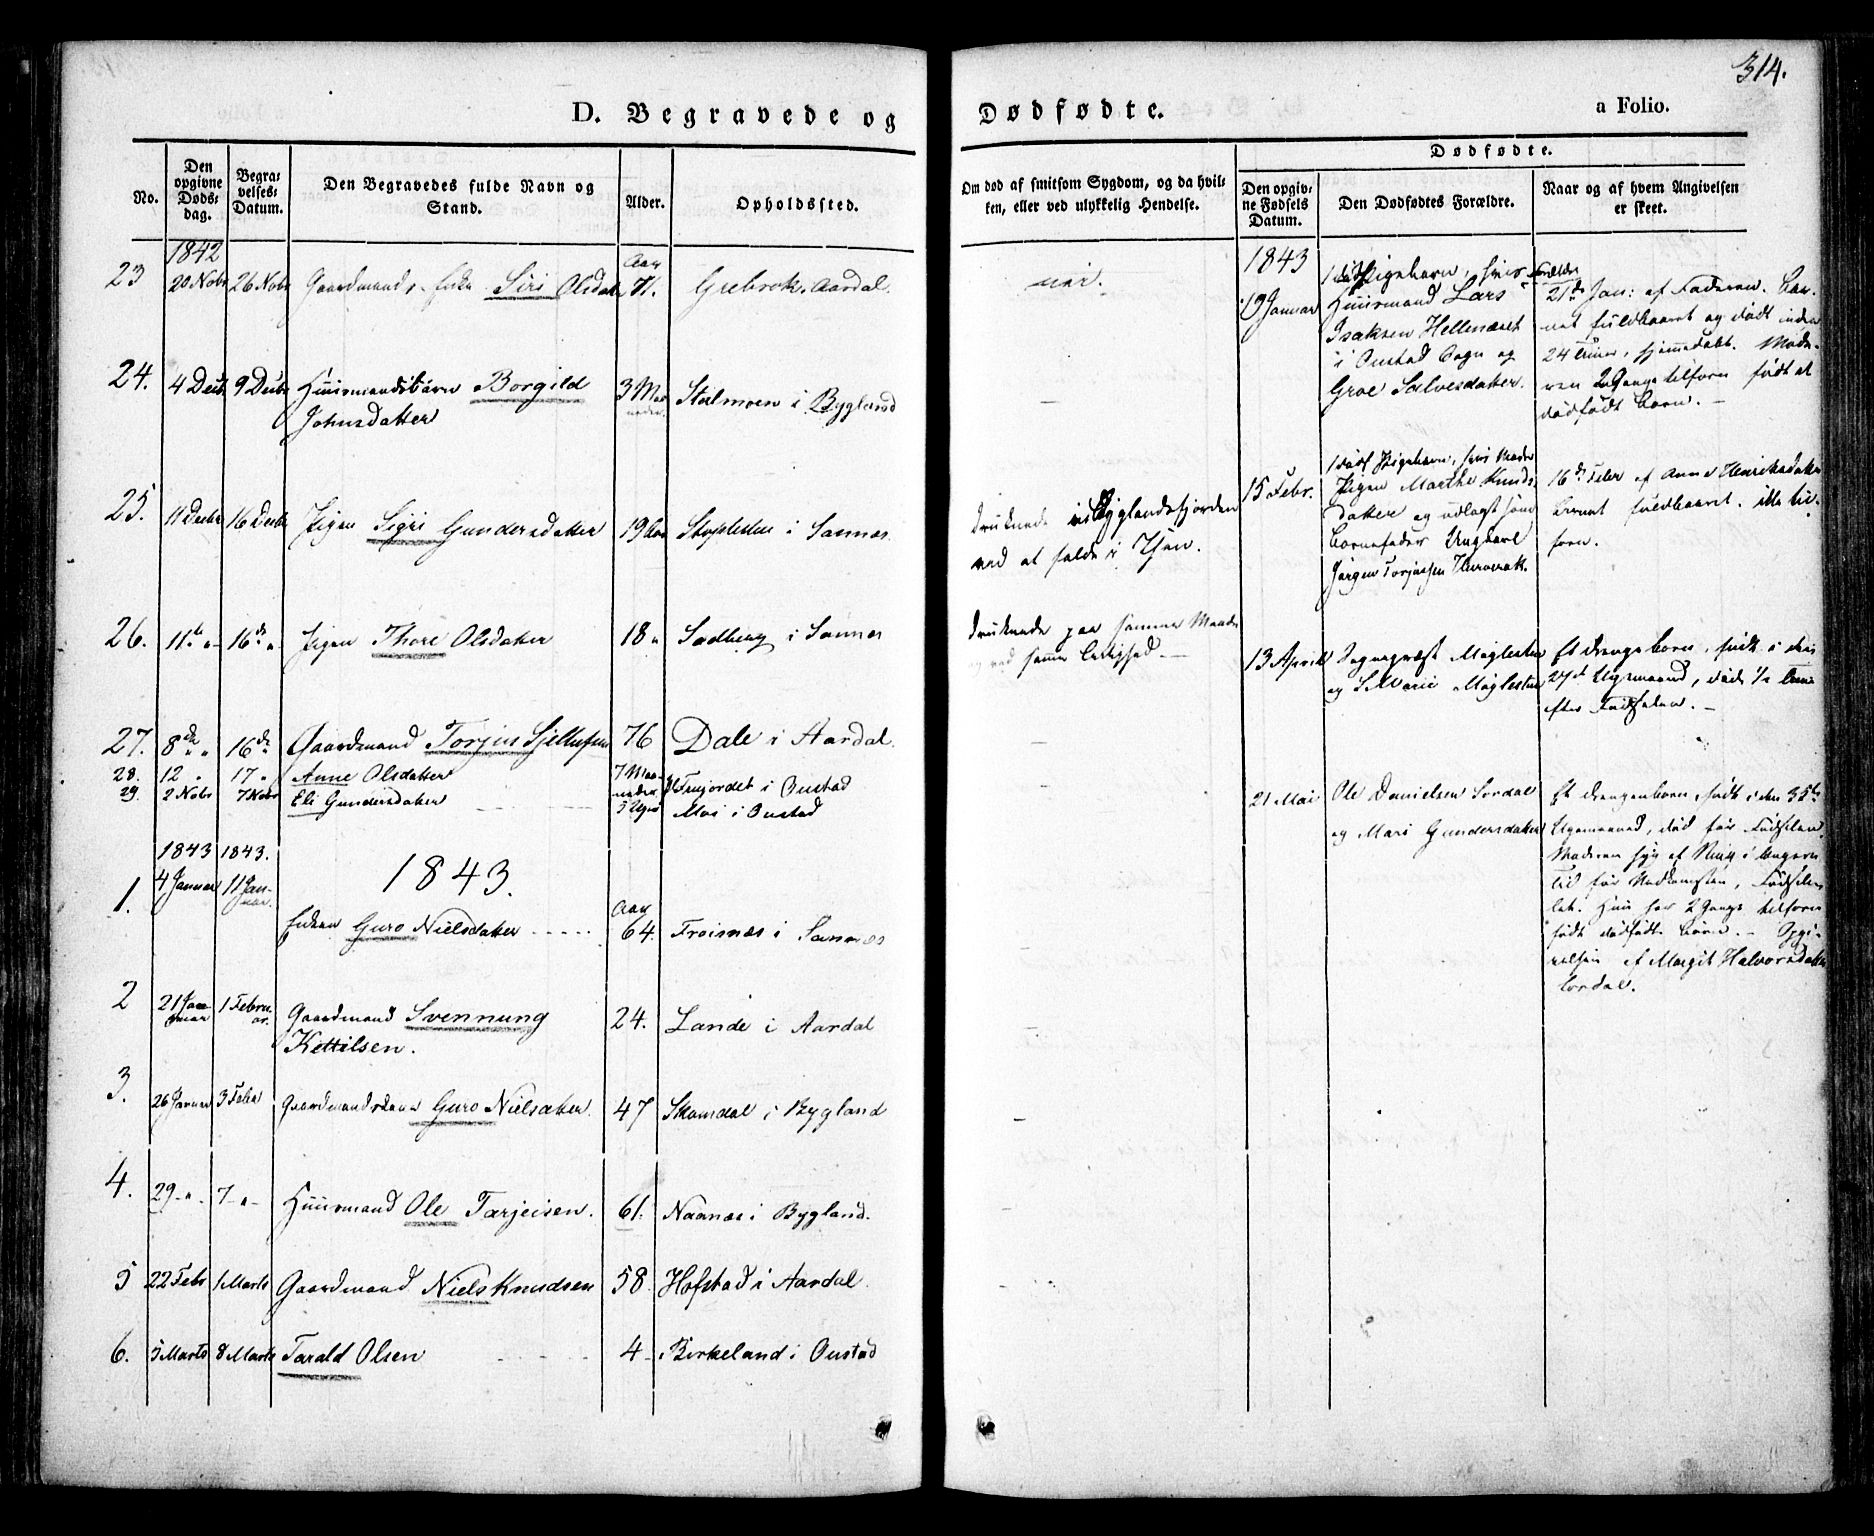 314.
D. Begravede og Dødfødte.
a Folio.
No.
Den opgivne Døds-dag.
Begra-velses-Datum.
Den Begravedes fulde Navn og Stand.
Alder.
Opholdssted.
Om død af smitsom Sygdom, og da hvil-ken, eller ved ulykkelig Hendelse.
Dødfødte.
Den opgiv-ne Fødsels Datum.
Den Dødfødtes Forældre.
Naar og af hvem Angivelsen er skeet.
1842
23 20 Nobr 26 Nobr Gaardmands-Enke Siri Olsdatter Aar 71. Grebrok. Aardal.
24. 4 Decbr 9 Decbr Huusmandsbarn Borgild 3 Maa-neder Stalmoen i Bygland —
Johnsdatter
25. 11 Decbr 16 Decbr Pigen Sigri Gundersdatter 19 Aar i Sannæs.
druknede i Byglandsfjorden
ved at falde i Isen.
26. 11te " 16de " Pigen Thore Olsdatter 18 " Sadberg i Sannæs
druknede paa samme Maade
og ved samme Leilighed —
27. 8de " 16de " Gaardmand Torjus 76 Dale i Aardal.
28. 12 " 17 " Anne Olsdatter 7 Maa-neder i Oustad
29. 2 Nobr 7 Nobr Eli Gundersdatter 5 Uger Moi i Oustad
1843 1843.
1843.
1. 4 Januar 11 Januar Enken Guro Nielsdatter Aar 64. Froisnæs i Sannæs
2 21 Januar 1 Februar Gaardmand Svennung 24. Lande i Aardal
Kettilsen.
3. 26 Januar 3 Febr Gaardmandskone Guro Nielsdatter. 47 Skomdal i Bygland
4. 29 - " - 7 - " - Huusmand Ole Tarjeisen. 61. Naanæs i Bygland.
5 22 Febr 1 Marts Gaardmand Niels Knudsen 58 Hofstad i Aardal.
6. 3 Marts 8 Marts Tarald Olsen 4 - Birkeland i Oustad
1843
19 Januar
1 dødf. Pigebarn, hvis Forældre
Huusmand Lars
Isaksen Hellenæset
i Oustad Sogn og
Groe Salvesdatter.
21de Jan: af Faderen. Bar-
net fuldbaaret og dødt inden
24 Timer, hjemmedøbt. Mode-
ren 2 Gange tilforn født et
dødfødt Barn. —
15 Febr.
1 dødf Pigebarn, hvis Moder
Pigen Marthe Knuds
datter og udlagt som
Barnefader Ungkarl
Jørgen Torjussen
16de Febr af Anne Henriksdatter
Barnet fuldbaaret. ikke til-
forn.
13 April
Sognepræst Møglestue
og S. Marie Møglestue
Et Drengebarn, født i den
27de Ugemaand, død ½ Time
efter Fødselen. —
21 Mai
Ole Danielsen Sordal
og Mari Gundersdatter
Et Drengebarn, født i den 35te
Ugemaaned, død før Fødselen.
Moderen syg af
Tid før Nedkomsten, Fødselen
let. Hun har 2 Gange tilforn
født dødfødte Børn. — Opgi-
velsen af Margit Halvorsdatter
Sordal.